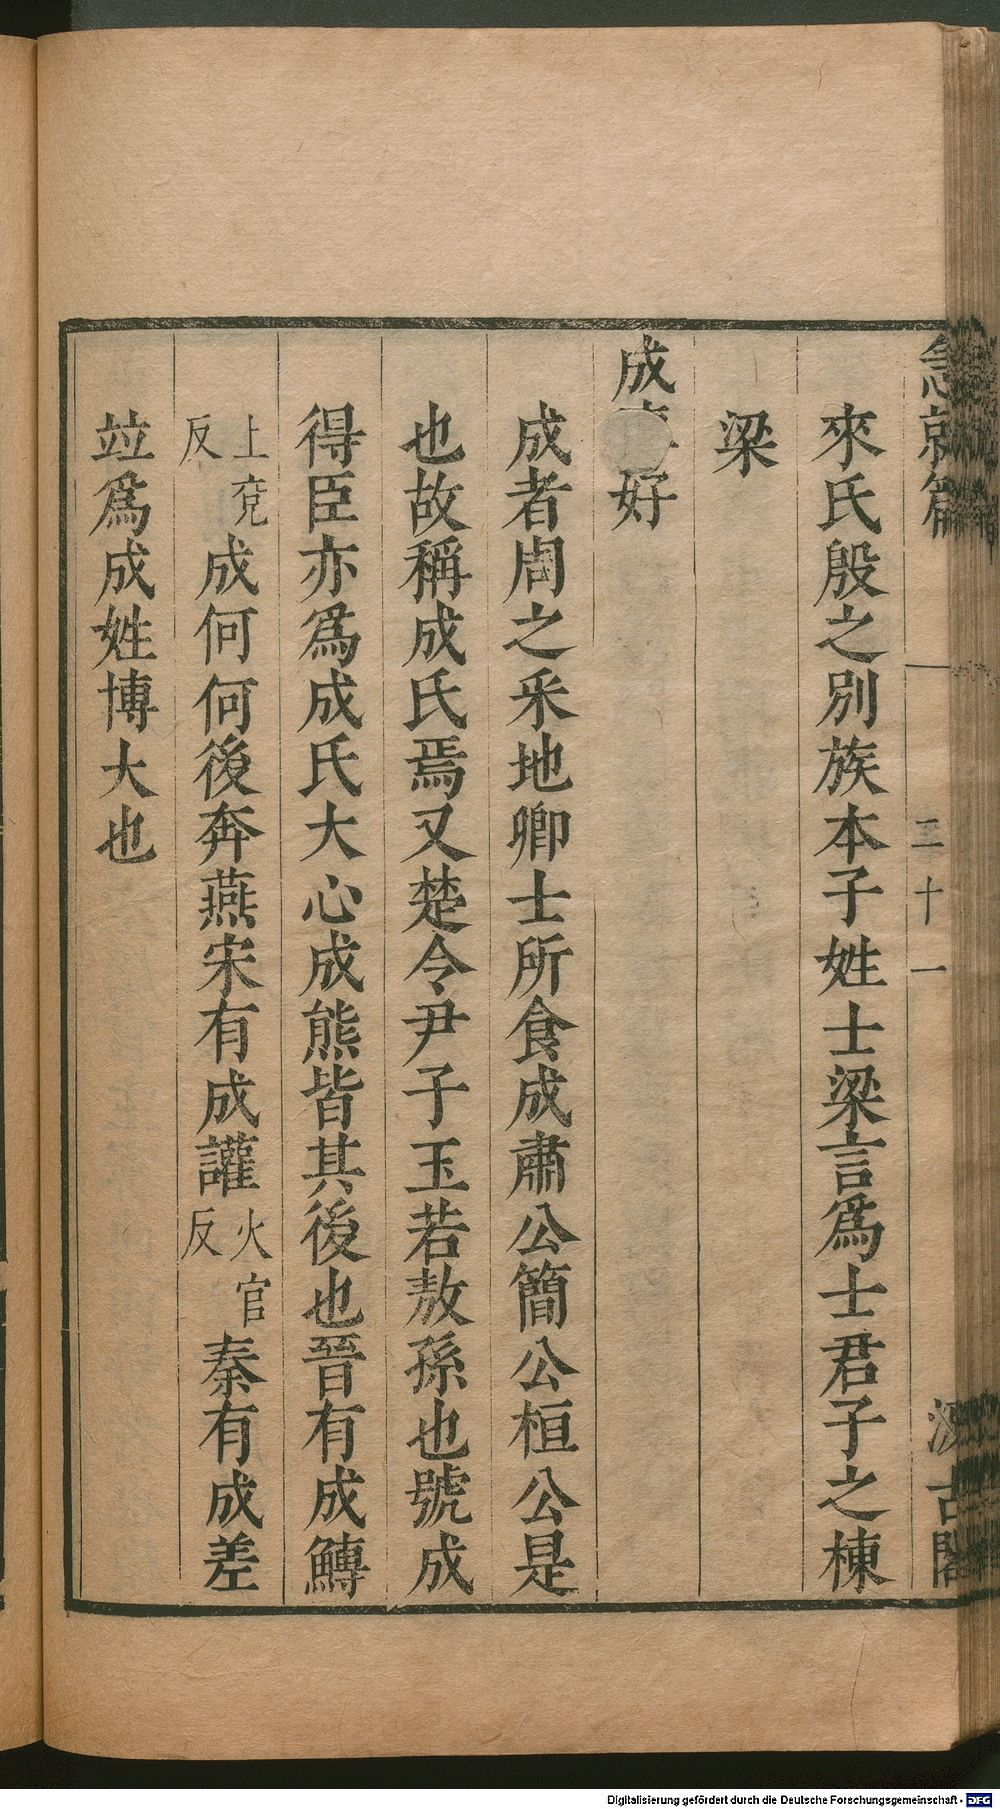 急就篇 二十一 汲古閣
來氏殷之別族本子姓士梁言爲士君子之棟
梁
成好
成者周之采地卿士所食成肅公簡公桓公是
也故稱成氏焉又楚令尹子玉若敖孫也號成
得臣亦爲成氏大心成熊皆其後也晉有成鱄
上兖反成何何後奔燕宋有成讙火官反秦有成差
竝爲成姓博大也
Digitalisierung gefördert durch die Deutsche Forschungsgemeinschaft - DFG